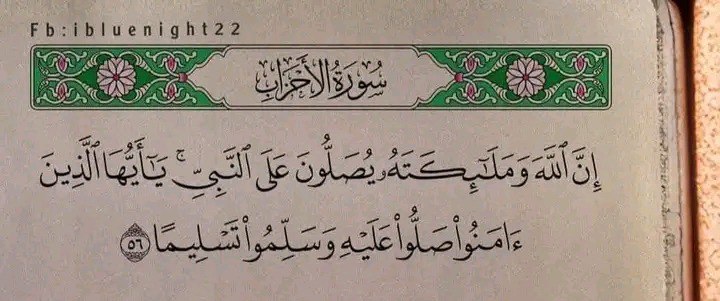 Fb:ibluenight22
سُورَةُ الأَحْزَابِ
إِنَّ ٱللَّهَ وَمَلَـٰٓئِكَتَهُۥ يُصَلُّونَ عَلَى ٱلنَّبِىِّ ۚ يَـٰٓأَيُّهَا ٱلَّذِينَ
ءَامَنُوا۟ صَلُّوا۟ عَلَيْهِ وَسَلِّمُوا۟ تَسْلِيمًا ٥٦